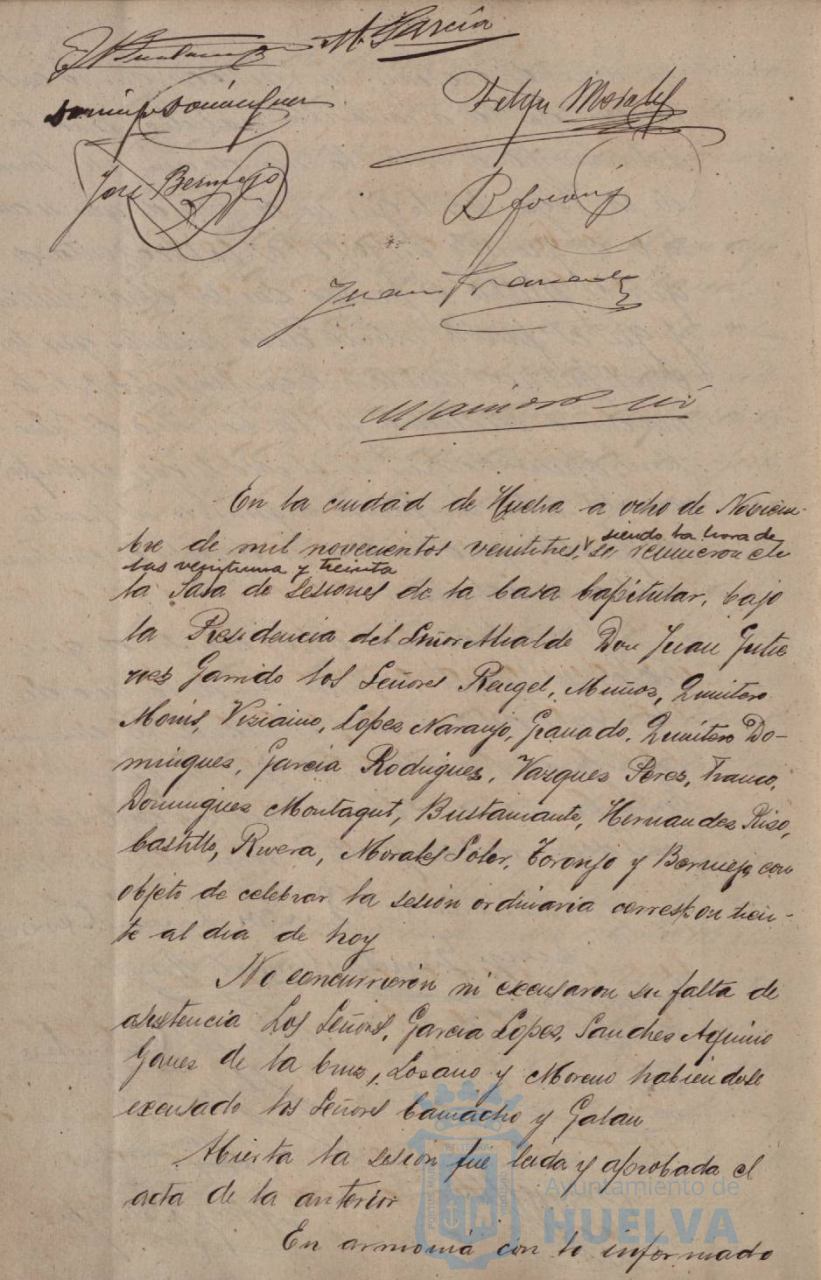 M. García
Felipe Morales
José Bermejo
Juan
En la ciudad de Huelva a ocho de Noviem-
bre de mil novecientos veintitres, siendo la hora de
las veintiuna y treinta se reunieron en
la Sala de Sesiones de la Casa Capitular, bajo
la Presidencia del Señor Alcalde Don Juan Gutie
rres Garrido los Señores Rengel, Muños, Quintero
Monis, Viziaino, Lopes Naranjo, Granado, Quintero Do-
mingues, Garcia Rodrigues, Vasques Peres, Franco,
Domingues Montagut, Bustamante, Hernandes Riso,
Castillo, Rivera, Morales Soler, Toronjo y Bermejo con
objeto de celebrar la sesión ordinaria correspondien-
te al dia de hoy
No concurrieron ni excusaron su falta de
asistencia Los Señores, Garcia Lopes, Sanches Aquino
Gomes de la Crus, Losano y Moreno habiendose
excusado los Señores Camacho y Galan
Abierta la sesión fué leida y aprobada el
acta de la anterior
En armonia con lo informado
Ayuntamiento de
HUELVA